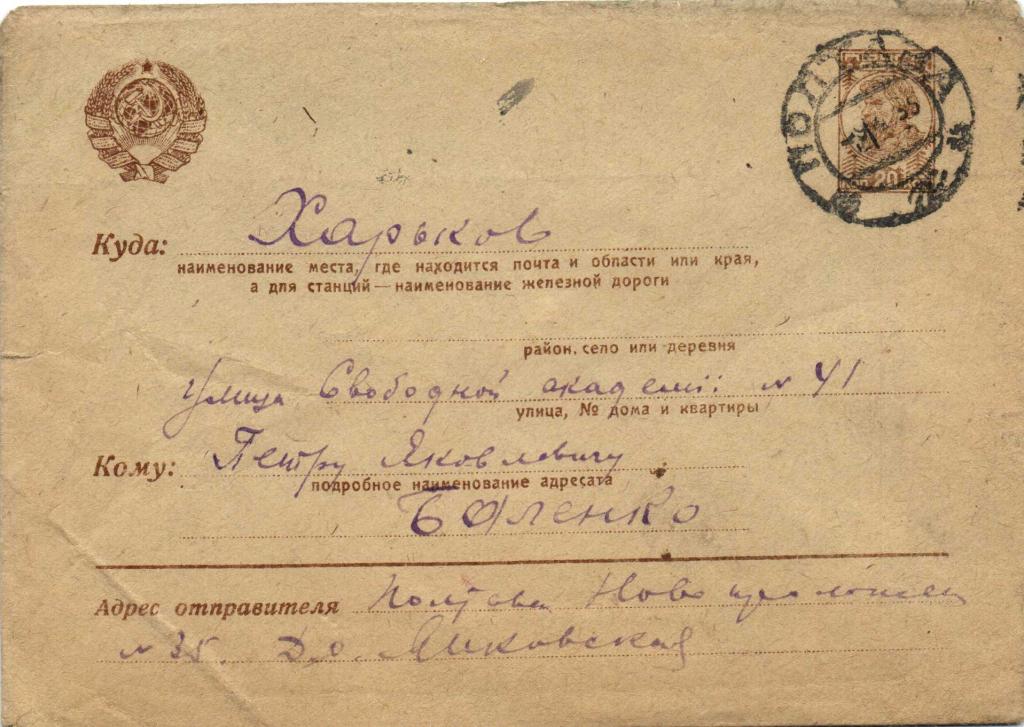 ПОЛТАВА
20
Куда: Харьков
наименование места, где находится почта и области или края,
а для станций—наименование железной дороги
район, село или деревня
Улица Свободной академіі N 41
улица, № дома и квартиры
Кому: Петру Яковлевичу
подробное наименование адресата
Адрес отправителя Полтава Ново
N 35.